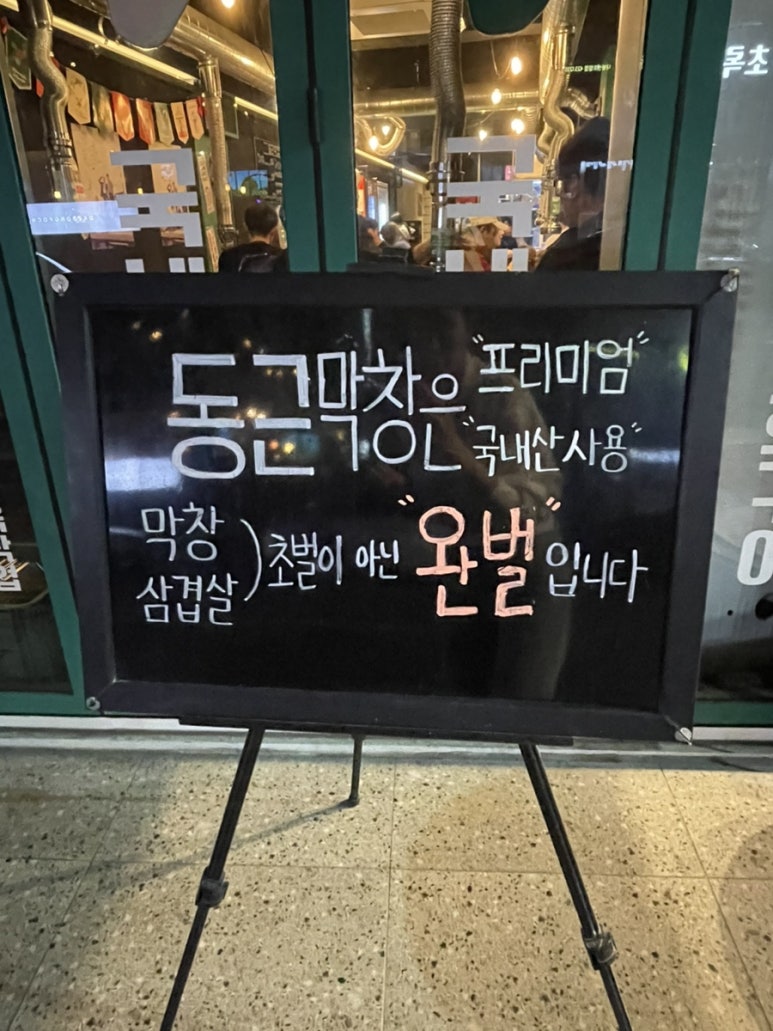 동근막창은 "프리미엄"
"국내산사용"
막창
삼겹살
) 초벌이 아닌 "완벌" 입니다